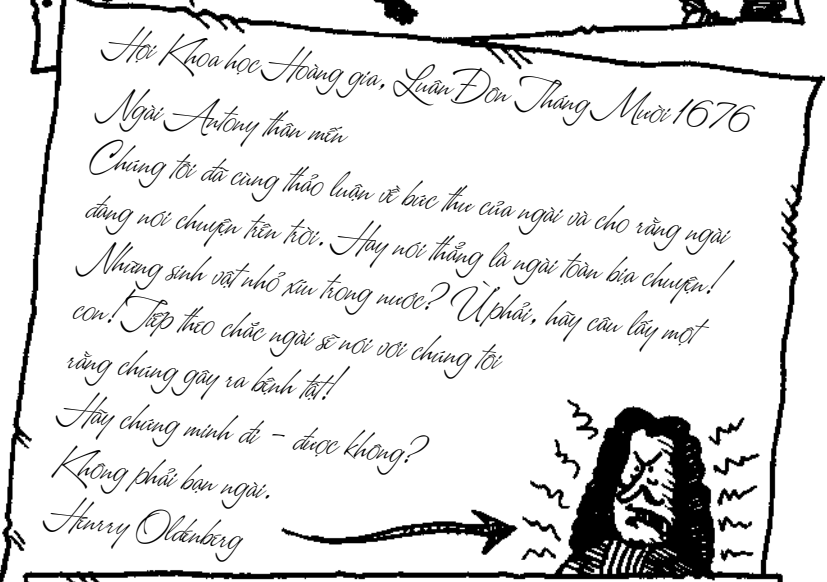 Hội Khoa học Hoàng gia, Luân Đôn Tháng Mười 1676
Ngài Antony thân mến
Chúng tôi đã cùng thảo luận về bức thư của ngài và cho rằng ngài
đang nói chuyện trên trời. Hay nói thẳng là ngài toàn bịa chuyện!
Những sinh vật nhỏ xíu trong nước? Ừ phải, hãy câu lấy một
con! Tiếp theo chắc ngài sẽ nói với chúng tôi
rằng chúng gây ra bệnh tật!
Hãy chứng minh đi - được không?
Không phải bạn ngài.
Henrry Oldenberg